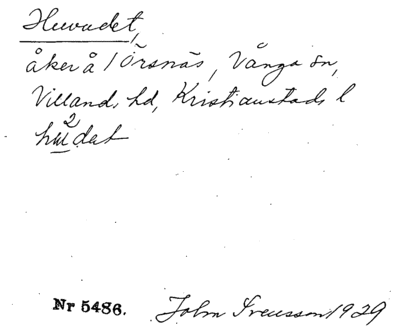 Huvudet,
åker å 1 Örsnäs, Vånga sn,
Villands hd, Kristianstads l
hu2det
Nr 5486. John Svensson 1929